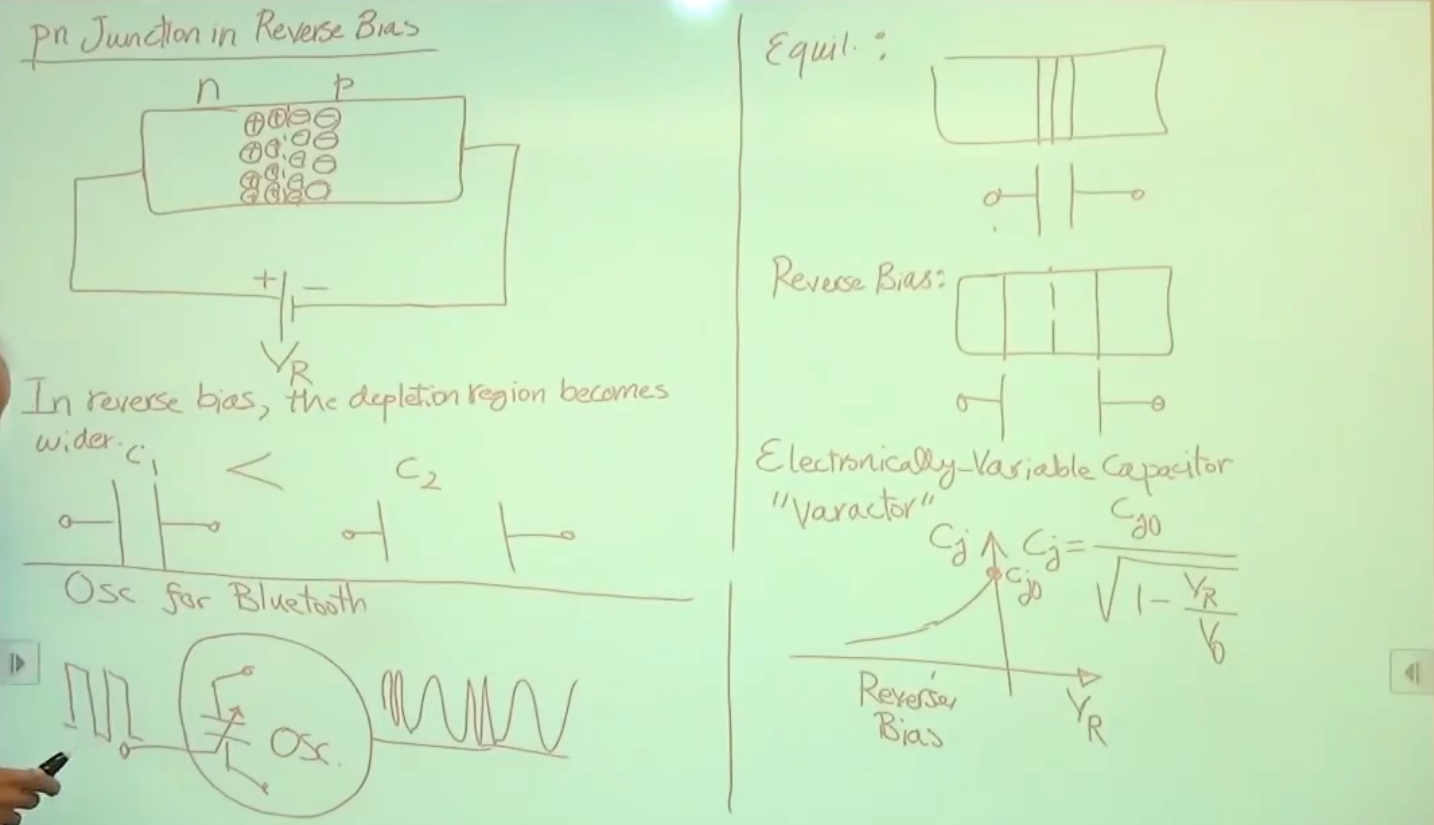 pn Junction in Reverse Bias
n p
+ −
VR
In reverse bias, the depletion region becomes
wider.
C1 < C2
Osc for Bluetooth
Osc.
Equil. :
Reverse Bias:
Electronically-Variable Capacitor
"Varactor"
Cj
Cj0
Cj = Cj0 / √(1 − VR/V0)
Reverse
Bias
VR